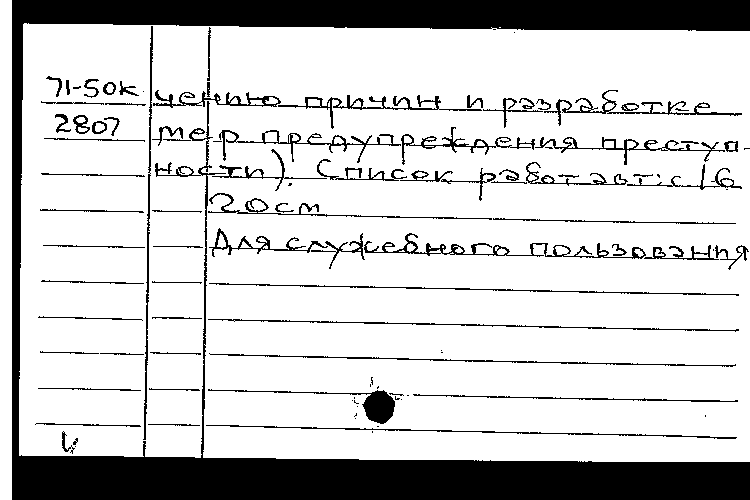 71-50к чению причин и разработке
2807 мер предупреждения преступ-
ности). Список работ авт.: с 16
20см
Для служебного пользования